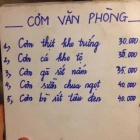 CƠM VĂN PHÒNG
1, Cơm thịt kho trứng 30.000
2, Cơm cá kho tộ 35.000
3, Cơm gà rút nấm 35.000
4, Cơm sườn chua ngọt 40.000
5, Cơm bò sốt tiêu đen 40.000